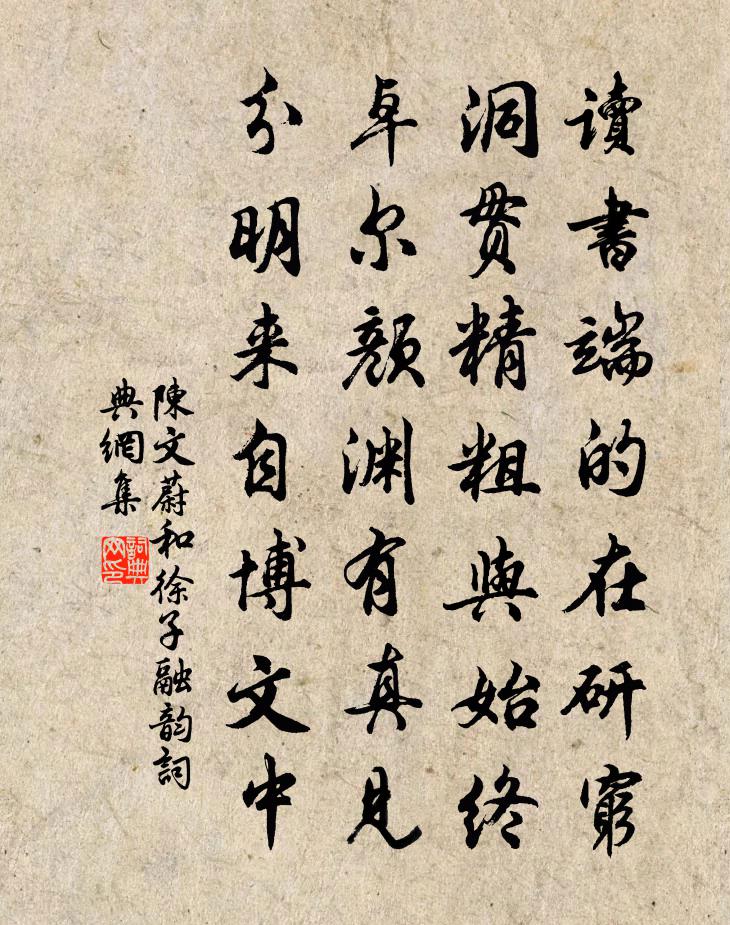 讀書端的在研窮
洞贯精粗與始終
卓尔颜渊有真見
分明来自博文中
陳文蔚和徐子融韵詞
典網集
詞典網印